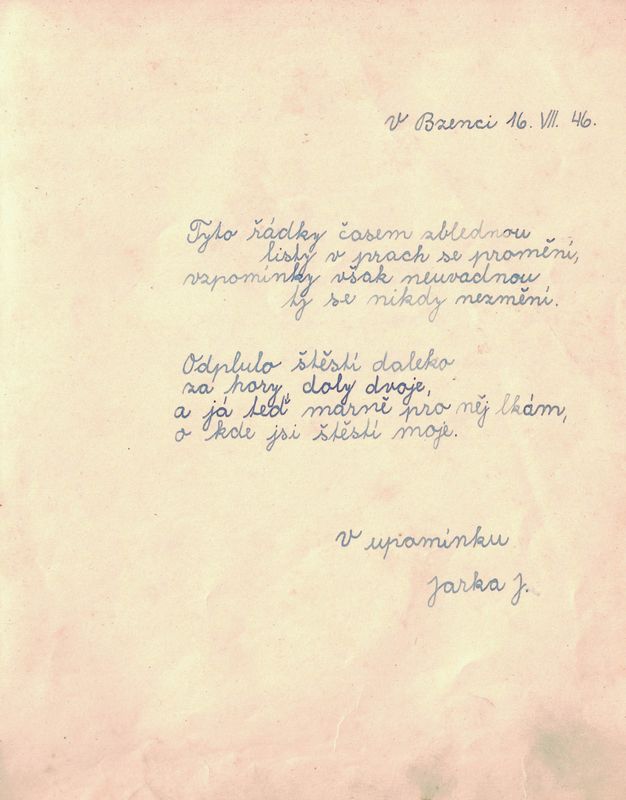 V Bzenci 16. VII. 46.
Tyto řádky časem zblednou
listy v prach se promění,
vzpomínky však neuvadnou
ty se nikdy nezmění.
Odplulo štěstí daleko
za hory, doly dvoje,
a já teď marně pro něj lkám,
o kde jsi štěstí moje.
V upomínku
Jarka J.